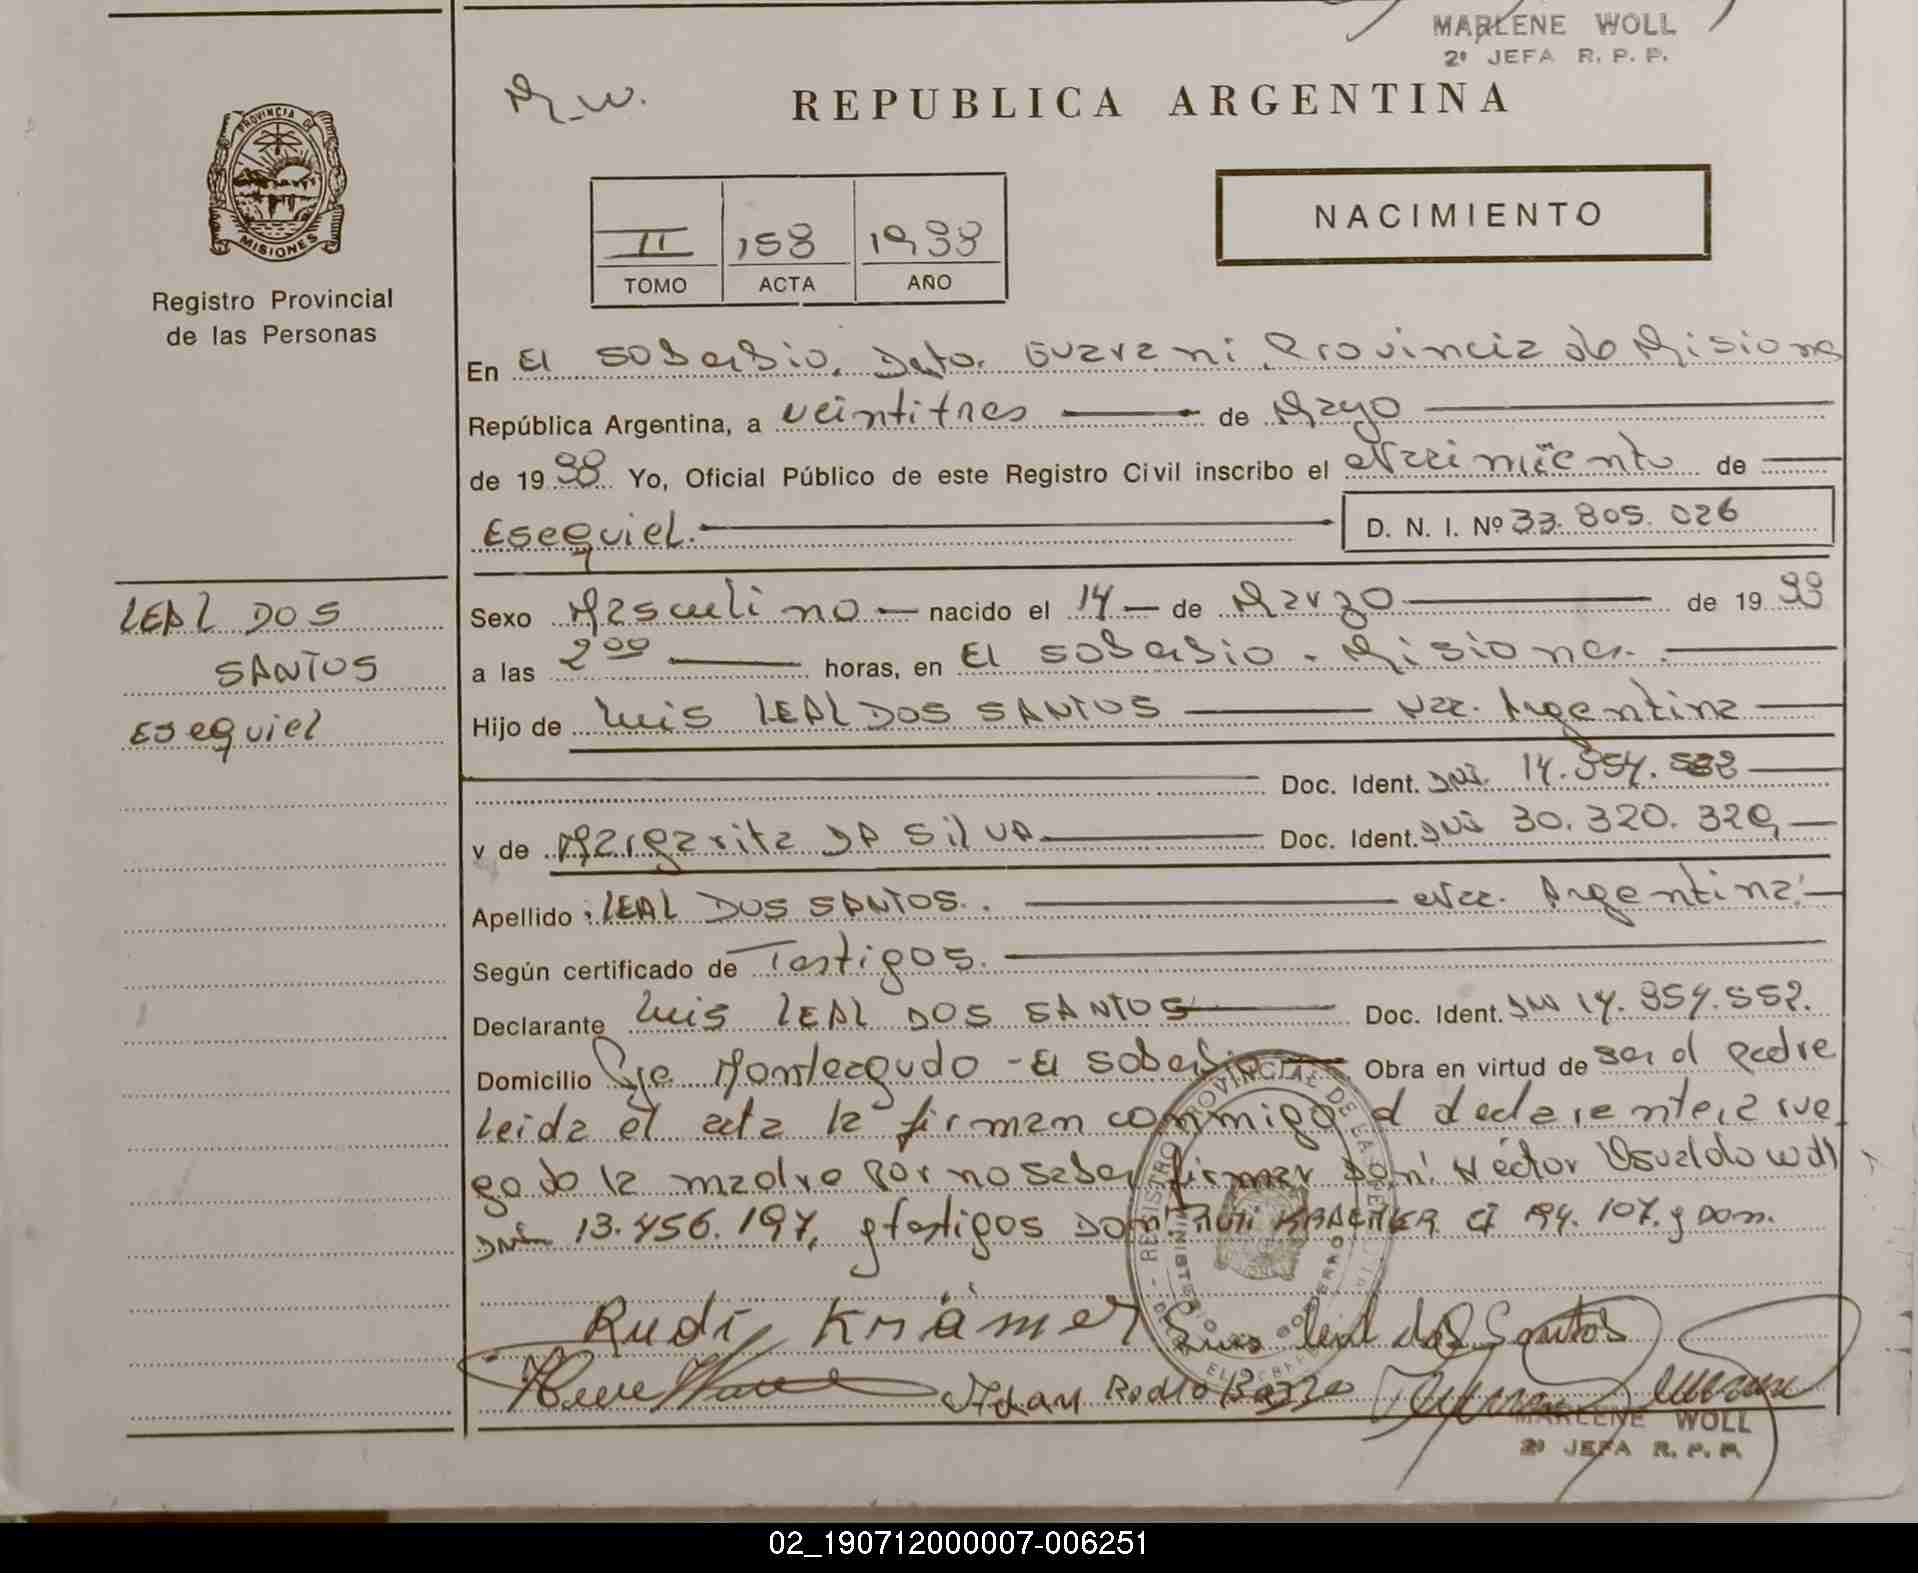 MARLENE WOLL
2º JEFA R. P. P.
M.W.
REPUBLICA ARGENTINA
PROVINCIA DE
MISIONES
Registro Provincial
de las Personas
NACIMIENTO
II 158 1988
TOMO ACTA AÑO
En El soberbio, Dpto. Guarani, Provincia de Misiones
República Argentina, a veintitres de Mayo
de 1988 Yo, Oficial Público de este Registro Civil inscribo el Nacimiento de
Esequiel. D. N. I. Nº 33.805.026
LEAL DOS
SANTOS
Esequiel
Sexo Masculino nacido el 14 de Marzo de 1988
a las 2 00 horas, en El soberbio - Misiones.
Hijo de Luis LEAL DOS SANTOS Nac. Argentina
Doc. Ident. DNI. 14.854.552
y de Margarita DA SILVA Doc. Ident. DNI 30.320.329
Apellido: LEAL DOS SANTOS. Nac. Argentina
Según certificado de Testigos.
Declarante Luis LEAL DOS SANTOS Doc. Ident. DNI 14.854.552.
Domicilio Pje Monteagudo - El soberbio Obra en virtud de ser el padre
Leida el acta la firman conmigo el declarante, a rue
go de la madre por no saber firmar Don: Héctor Osvaldo
DNI 13.456.197, y testigos Don: Rudi KRAEMER CI 194.107. y Don.
REGISTRO PROVINCIAL DE LAS PERSONAS
MINISTERIO DE GOBIERNO
Rudi Krämer Luis leal dos Santos
MARLENE WOLL
2º JEFA R. P. P.
02_190712000007-006251